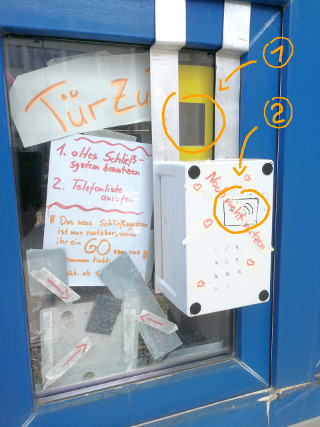 Tür Zu
1
2
1. altes Schließ-
system benutzen
2. Telefonliste
anrufen
"Das neue Schließsystem
ist nur nutzbar, wenn
ihr ein GO von uns
bekommen habt.
Noch nicht nutzen